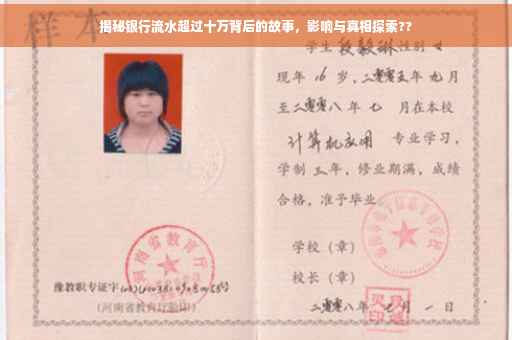 揭秘银行流水超过十万背后的故事，影响与真相探索??
样本
学生 段毅琳 性别 女
现年 16 岁，二零零五年 九月
至二零零八 年 七 月在本校
计算机应用 专业学习，
学制 三 年，修业期满，成绩
合格，准予毕业
学校（章）
校长（章）
二零零八年 七 月 一 日
河南省教育厅
豫教职专证字
（河南省教育厅验印）